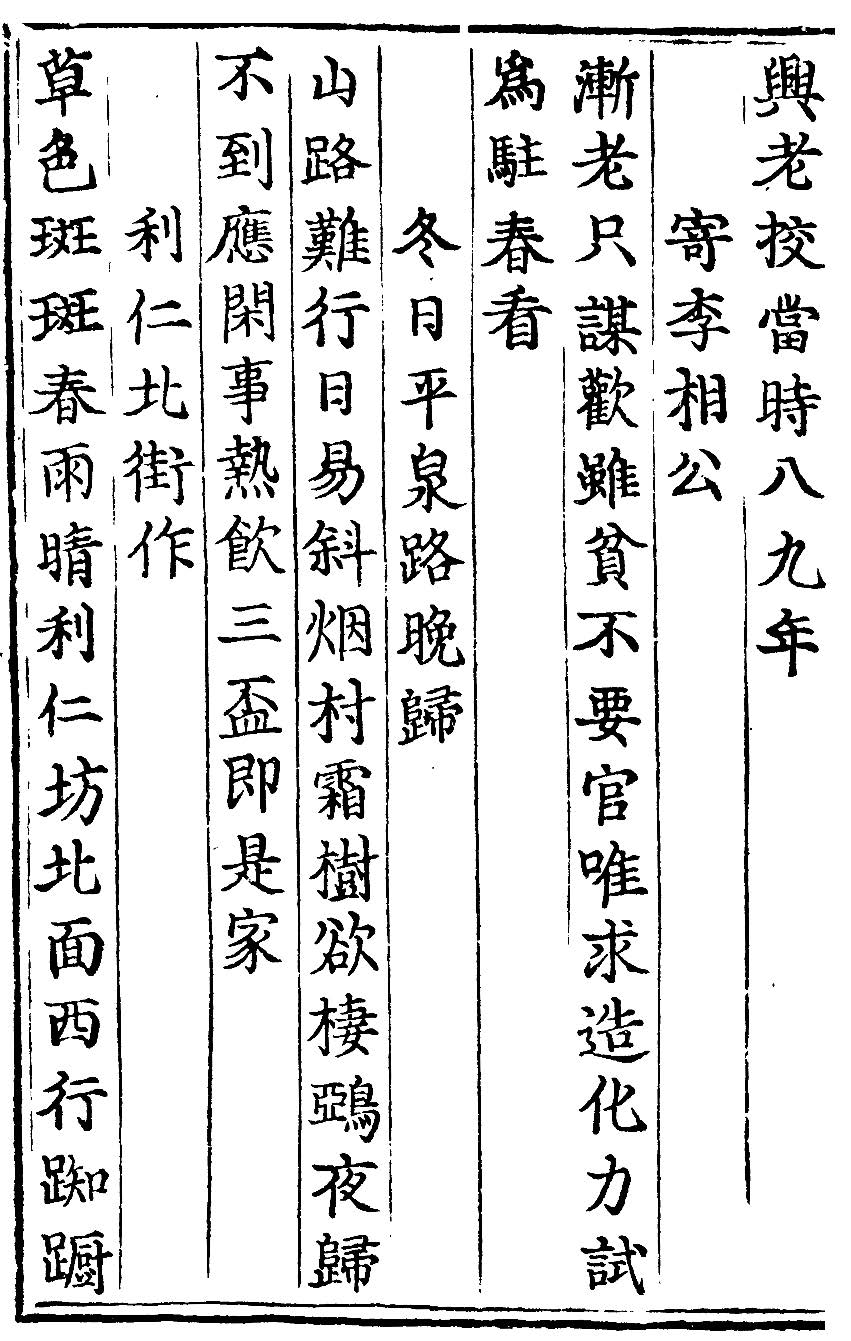 興老挍當時八九年
寄李相公
漸老只謀歡雖貧不要官唯求造化力試
爲駐春看
冬日平泉路晚歸
山路難行日易斜烟村霜樹欲棲鵶夜歸
不到應閑事熱飲三盃即是家
利仁北街作
草色斑斑春雨晴利仁坊北面西行踟蹰